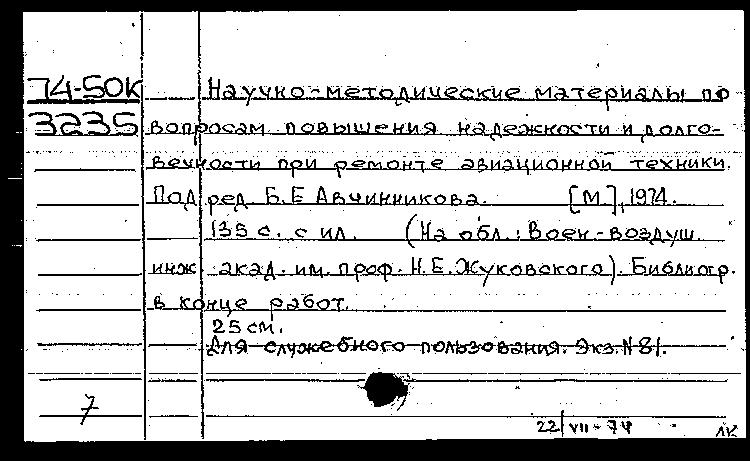 74-50К Научно-методические материалы по
3235 вопросам повышения надежности и долго-
вечности при ремонте авиационной техники.
Под ред. Б.Е Авчинникова. [М.], 1974.
135 с. с ил. (На обл.: Воен.-воздуш.
инж. акад. им. проф. Н.Е. Жуковского). Библиогр.
в конце работ.
25 см.
Для служебного пользования. Экз. N 81.
7
22/VII-74
ЛК